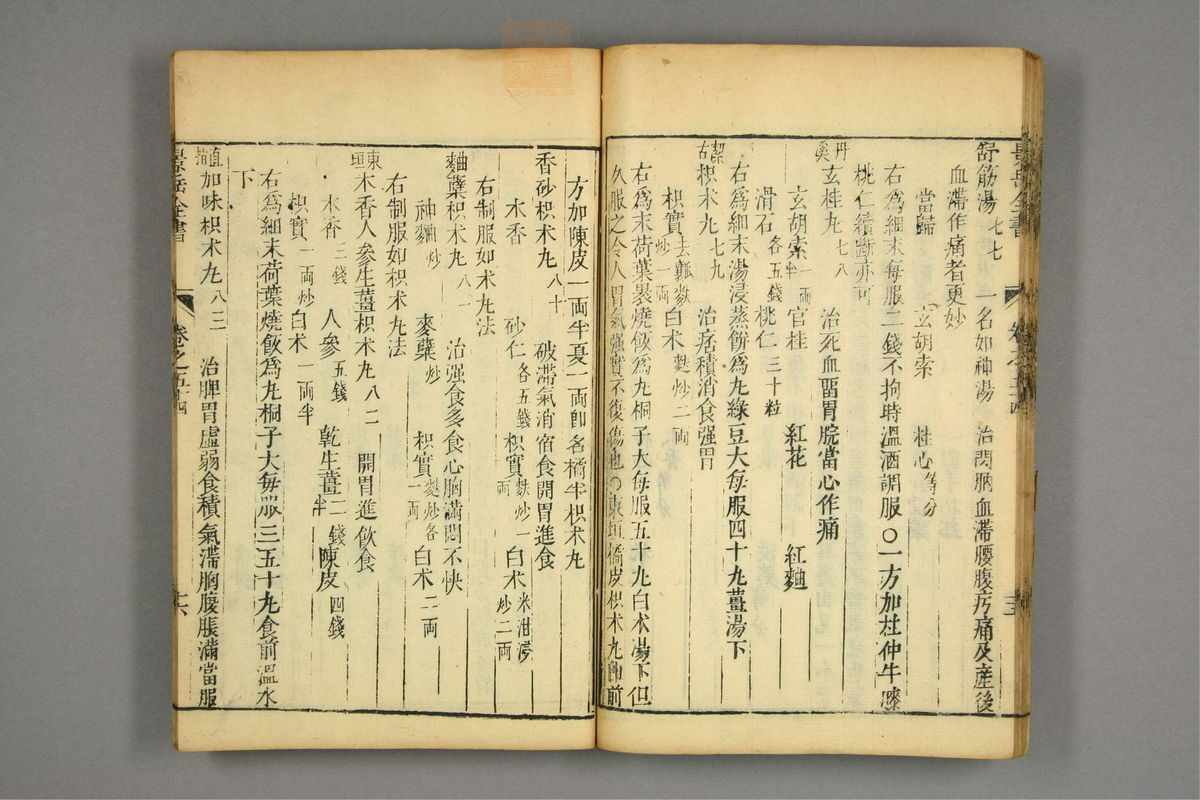 舒筋湯 七七 一名如神湯 治閃胸血滯腰腹疼痛及產後
血滯作痛者更妙
當歸 玄胡索 桂心 等分
右爲細末每服二錢不拘時溫酒調服○一方加杜仲牛膝
桃仁續斷亦可
丹溪玄桂丸 七八 治死血畱胃脘當心作痛
玄胡索 一兩半 官桂 紅花 紅麯
滑石 各五錢 桃仁 三十粒
右爲細末湯浸蒸餅爲丸綠豆大每服四十九薑湯下
潔古枳术丸 七九 治痞積消食强胃
枳實 去瓤麩炒一兩 白术 麩炒二兩
右爲末荷葉裹燒飯爲丸桐子大每服五十丸白术湯下但
久服之令人胃氣强實不復傷也○東垣橘皮枳术丸卽前
方加陳皮一兩半夏一兩卽名橘半枳术丸
香砂枳术丸 八十 破滯氣消宿食開胃進食
木香 砂仁 各五錢 枳實 麩炒一兩 白术 米泔浸炒二兩
右制服如术丸法
麯櫱枳术丸 八一 治强食多食心胸滿悶不快
神麯 炒 麥櫱 炒 枳實 麩炒各一兩 白术 二兩
右制服如枳术丸法
東垣木香人參生薑枳术丸 八二 開胃進飲食
木香 三錢 人參 五錢 乾生薑 二錢半 陳皮 四錢
枳實 一兩炒 白术 一兩半
右爲細末荷葉燒飯爲丸桐子大每服三五十丸食前溫水
下
加味枳术丸 八三 治脾胃虛弱食積氣滯胸腹脹滿當服
景岳全書 卷之五十四 十六